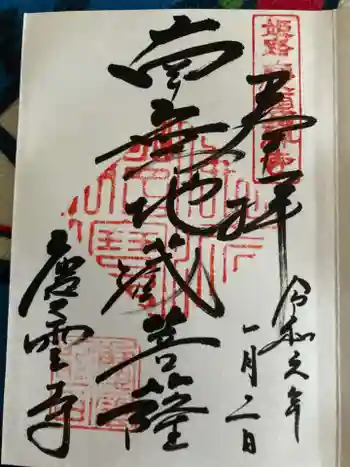 姫路
奉拝
令和六年
一月二日
南無地蔵菩薩
慶雲寺